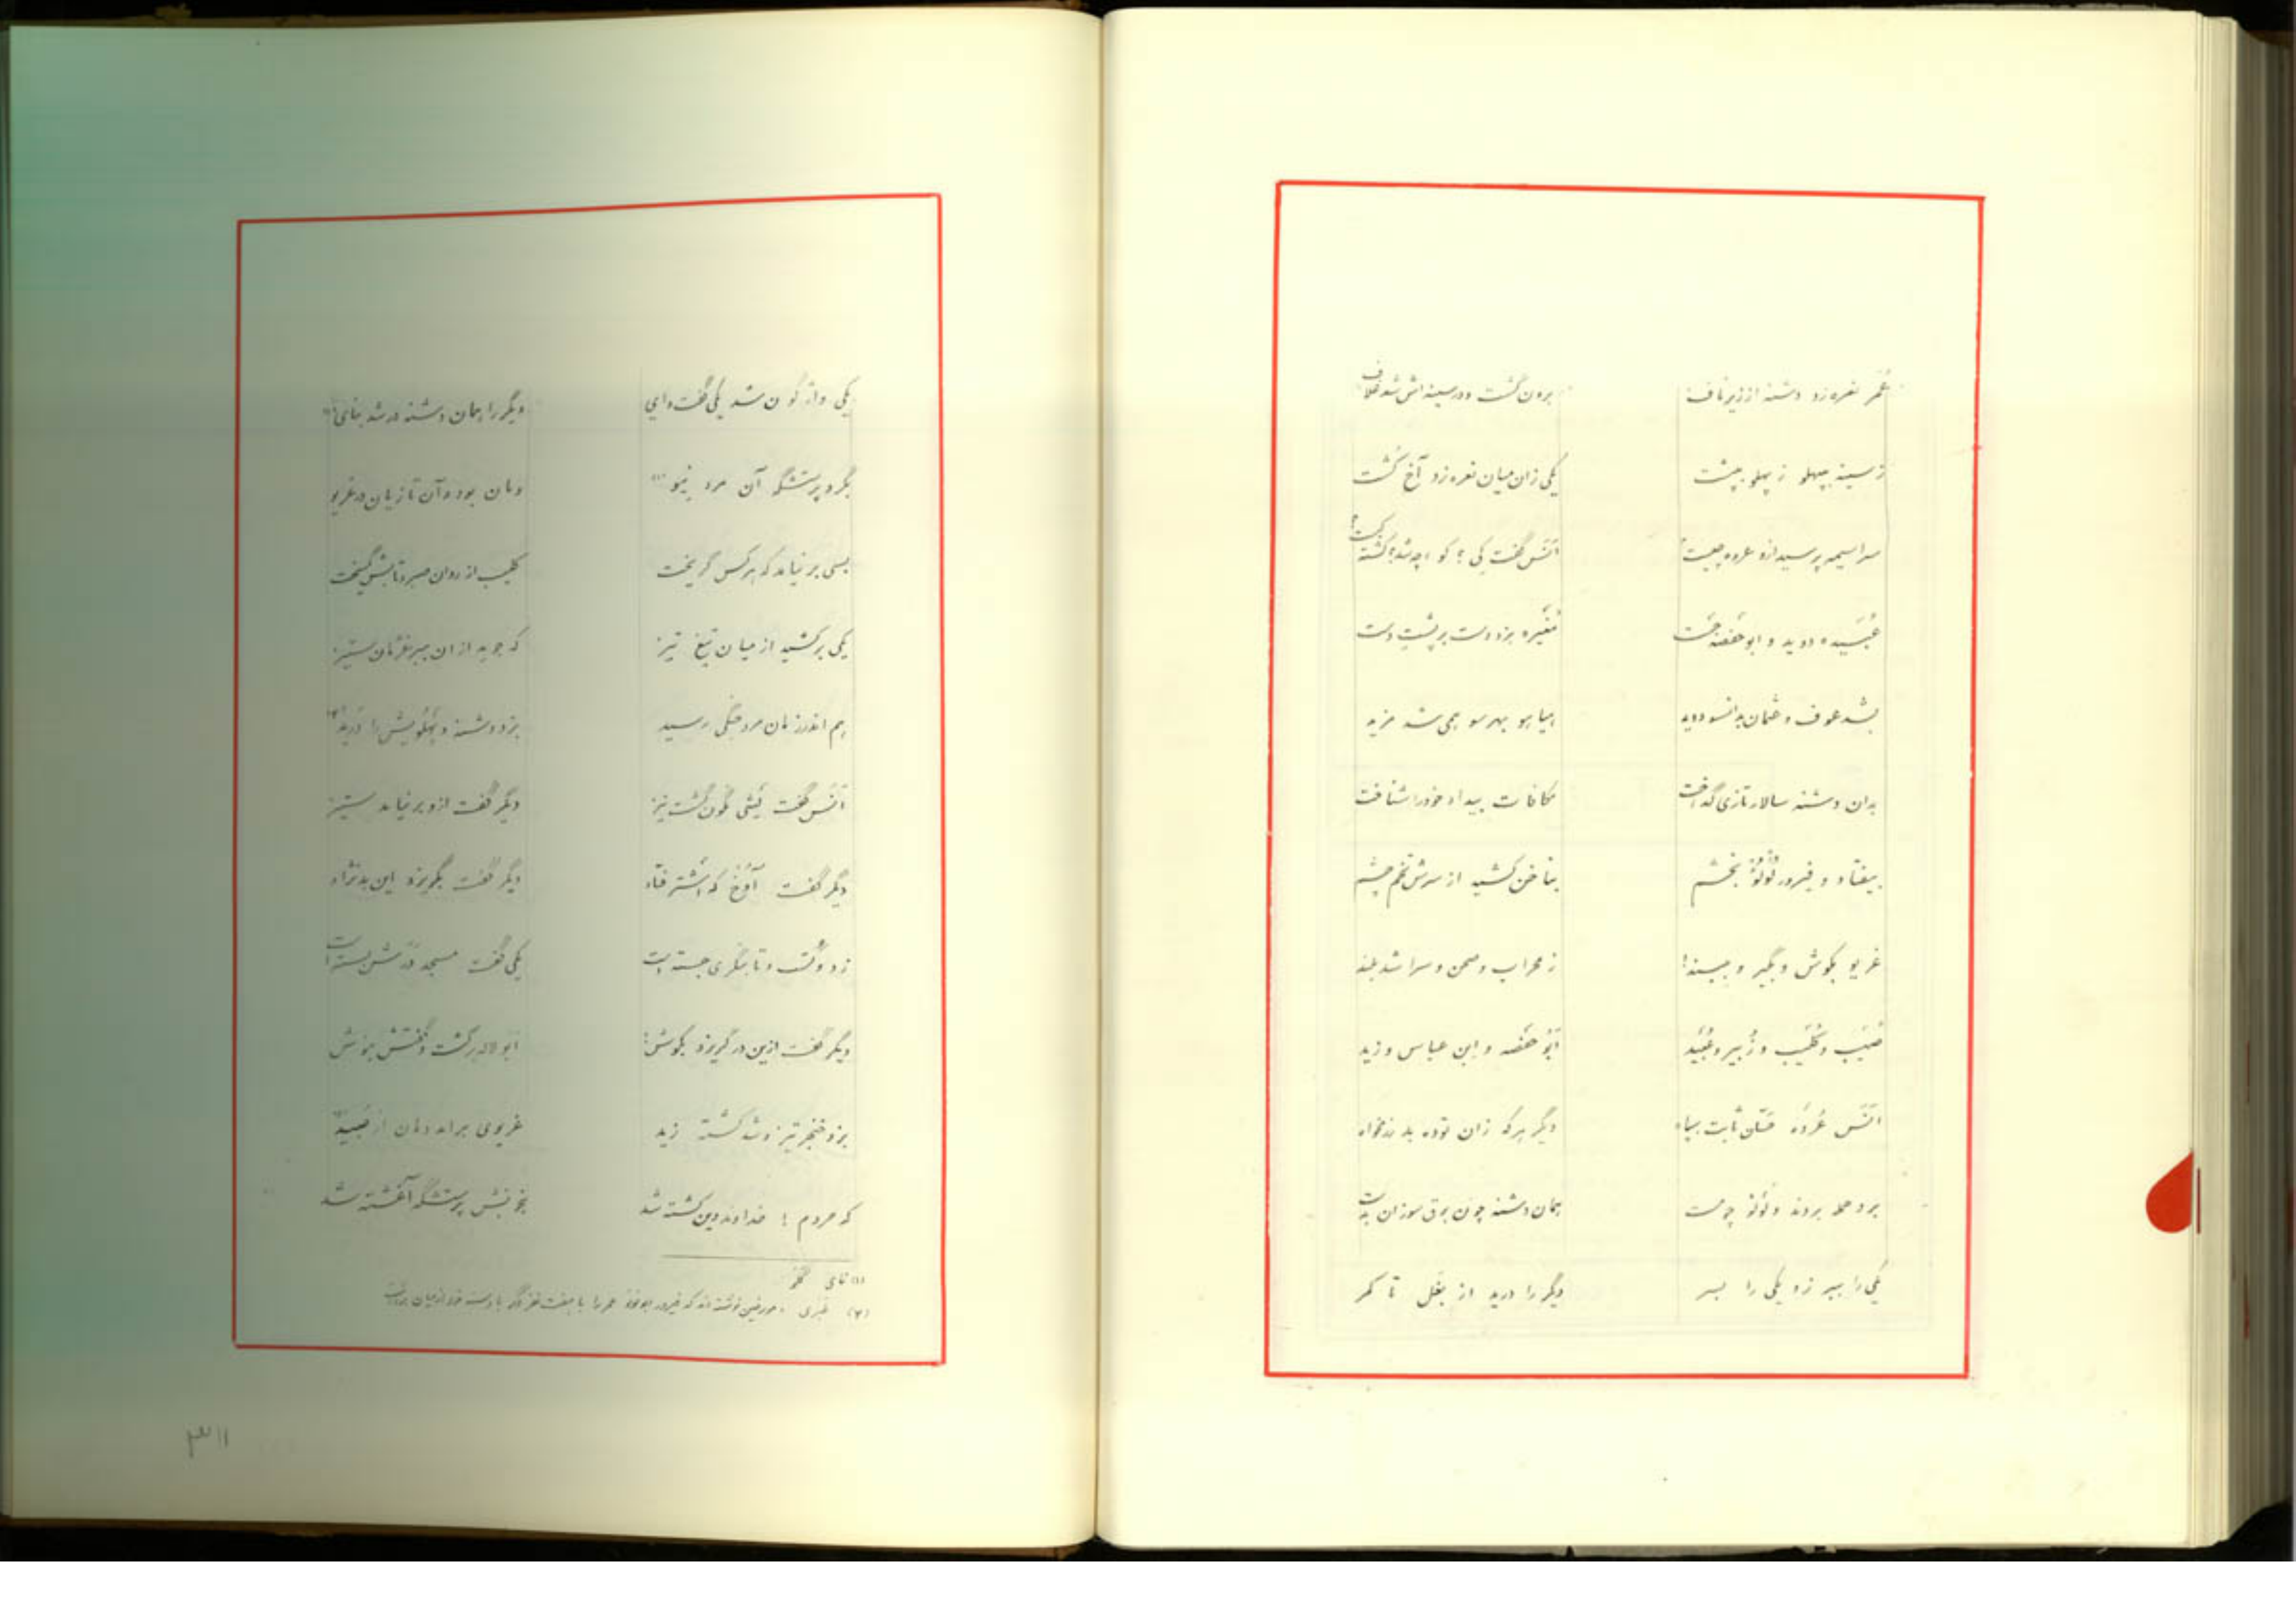 عُمَر نعره زد دشنه از زیر ناف برون گشت و در سینه‌اش شد غلاف
ز سینه بپهلو ز پهلو بپشت یکی زان میان نعره زد آخ کُشت
سراسیمه پرسید ازو عروه چیست؟ اَنَس گفت کی؟ کو؟ چه شد؟ کشته کیست؟
عُبَیده دوید و ابوحفصه جَست مُغَیره بزد دست بر پشتِ دست
بشد عوف و عثمان بدانسو دوید هیاهو بهر سو همی شد مزید
بدان دشنه سالار تازی گداخت مکافات بیداد خود را شناخت
بیفتاد و فیروز لؤلؤ بخشم بناخن کشید از سرش تخم چشم
غریو بکوش و بگیر و ببند! ز محراب و صحن و سرا شد بلند
و کلیب و زُبیر و عُبَید اَبُو حَفصه و ابن عباس و زید
اَنَس عُروَه حسّان ثابت بیاه دگر هرکه زان توده بد رزمخواه
برو حمله بردند و لؤلؤ چو مست همان دشنه چون برق سوزان بدست
یکی را ببر زد یکی را بسر دگر را درید از بغل تا کمر
یکی واژگون شد یکی گفت وای دیگر را همان دشنه در شد بنای (۱)
بگرد پرستشگه آن مرد نیو دمان بود و آن تازیان در غریو
بسی بر نیامد که هر کس گریخت کلیب از روان صبر و تابش گسیخت
یکی برکشید از میان تیغ تیز که جوید از آن ببر غرّان ستیز
هم اندر زمان مرد جنگی رسید بزد دشنه و پهلویش را درید (۲)
اَنَس گفت لیثی نگون گشت نیز دیگر گفت ازو بر نیاید ستیز
دیگر گفت آوخ که اشتر فتاد دیگر گفت بگریزد این بدنژاد
زد و کُشت و تا بنگری جسته است یکی گفت مسجد دَرَش بسته است
دیگر گفت ازین در گریزد بکوش! ابولؤلؤ برگشت و گفتش بنوش
بزد خنجر تیز و شد کشته زید غریوی برآمد دمان از عُبَید
که مردم! خداوند دین کشته شد بخونش پرستشگه آغشته شد
(۱) نای گلو
(۲) طبری و مورخین نوشته‌اند که فیروز ابولؤلؤ عمر را با هفت نفر دیگر با دست خود از میان برداشت
۳۱۱